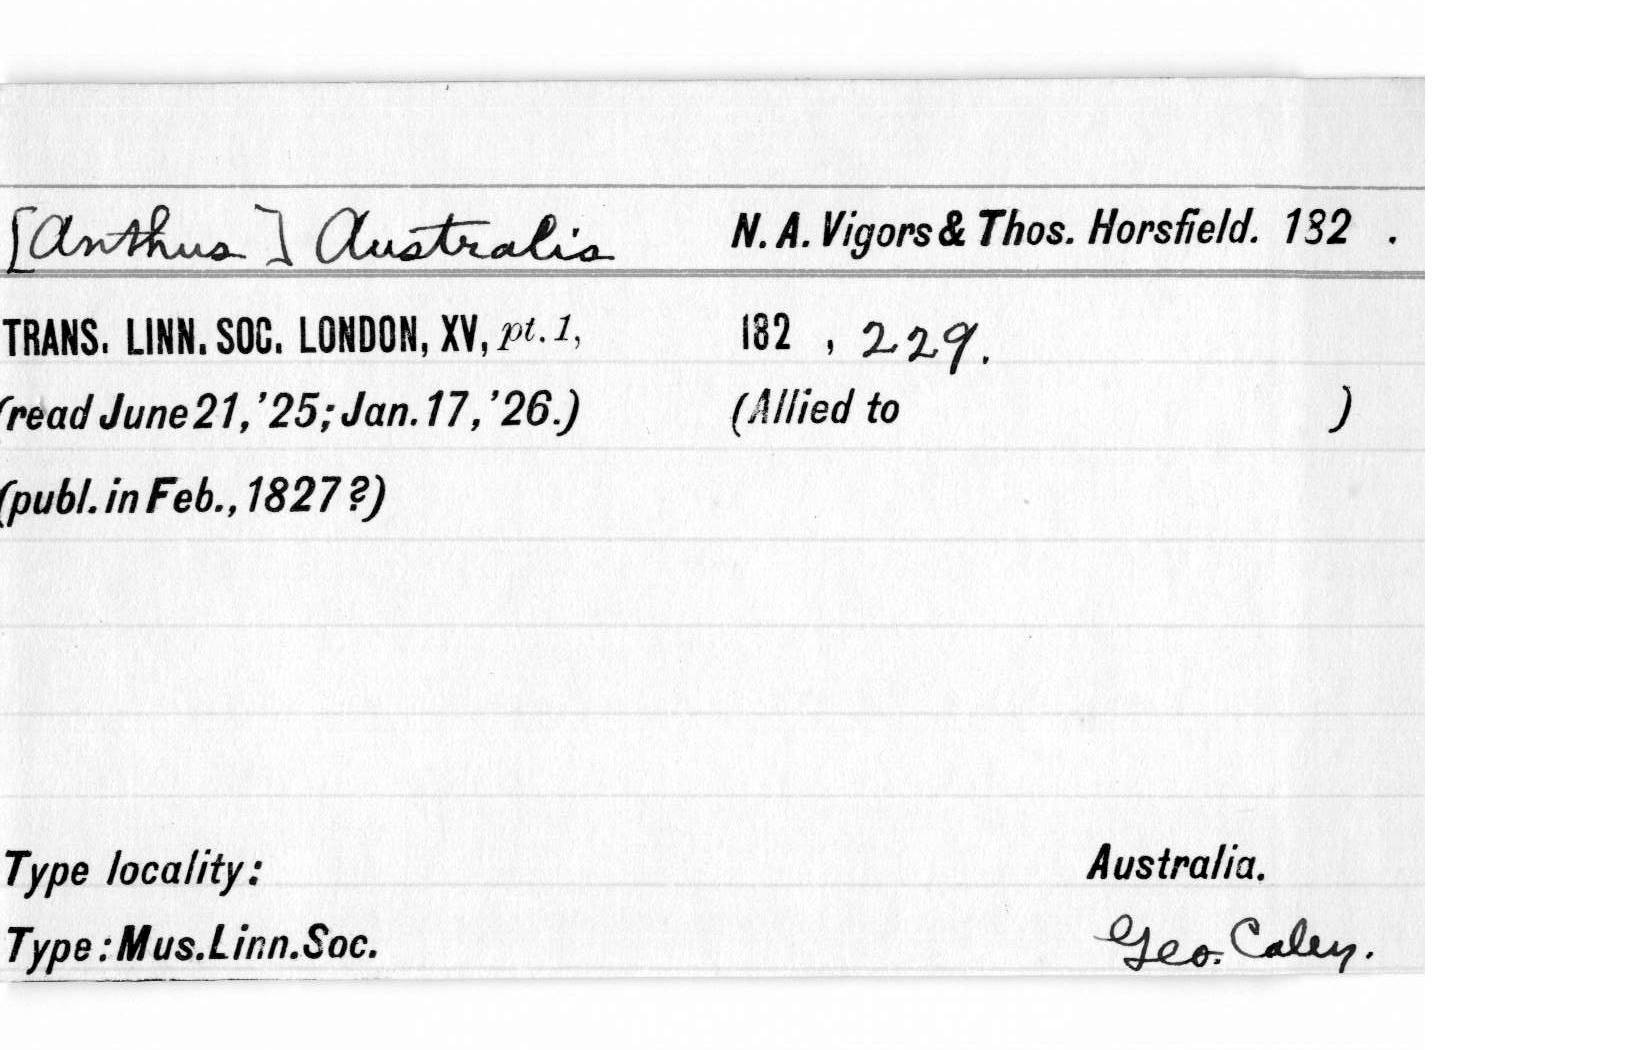 [Anthus] Australis N. A. Vigors & Thos. Horsfield. 182 .
TRANS. LINN. SOC. LONDON, XV, pt. 1, 182 , 229.
(read June 21, '25; Jan. 17, '26.) (Allied to )
(publ. in Feb., 1827?)
Type locality: Australia.
Type: Mus. Linn. Soc. Geo. Caley.